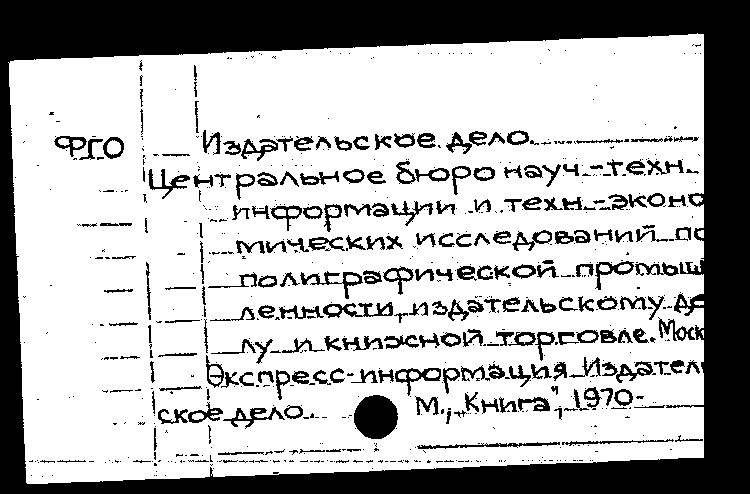 ФГО Издательское дело.
Центральное бюро науч.-техн.
информации и техн.-эконо
мических исследований по
полиграфической промыш
ленности, издательскому де
лу и книжной торговле. Моск
Экспресс-информация Издатель
ское дело. М., „Книга", 1970-